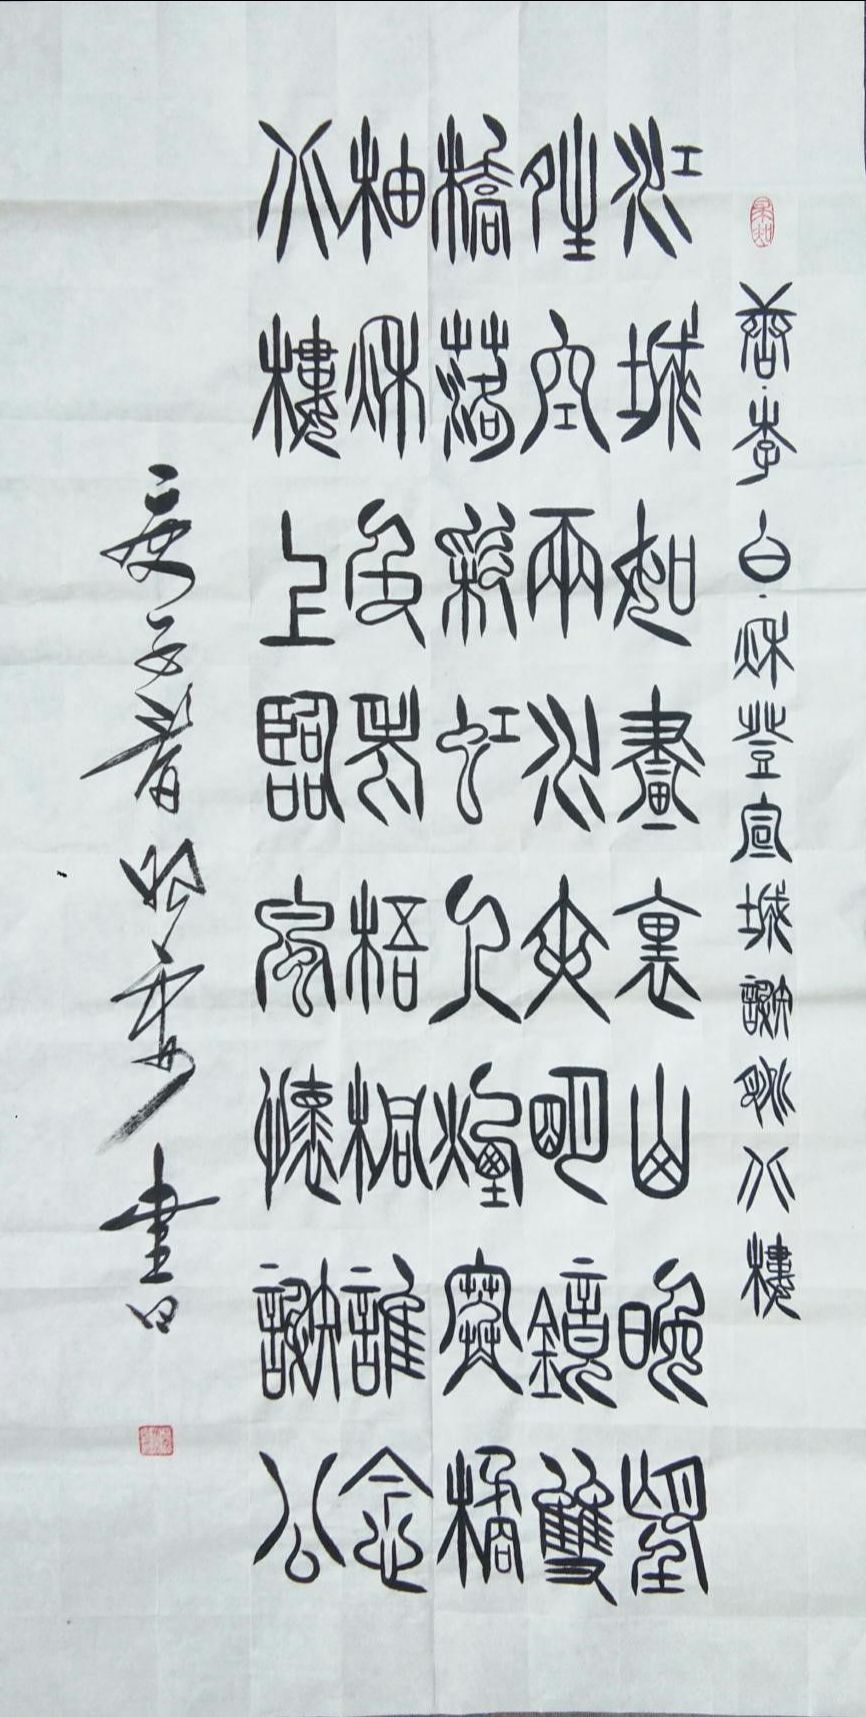 唐·李白·秋登宣城謝朓北樓
江城如畫裏山晚望
夝空兩水夾明鏡雙
橋落彩虹人煙寒橘
柚秋色老梧桐誰念
北樓上臨風懷謝公
書